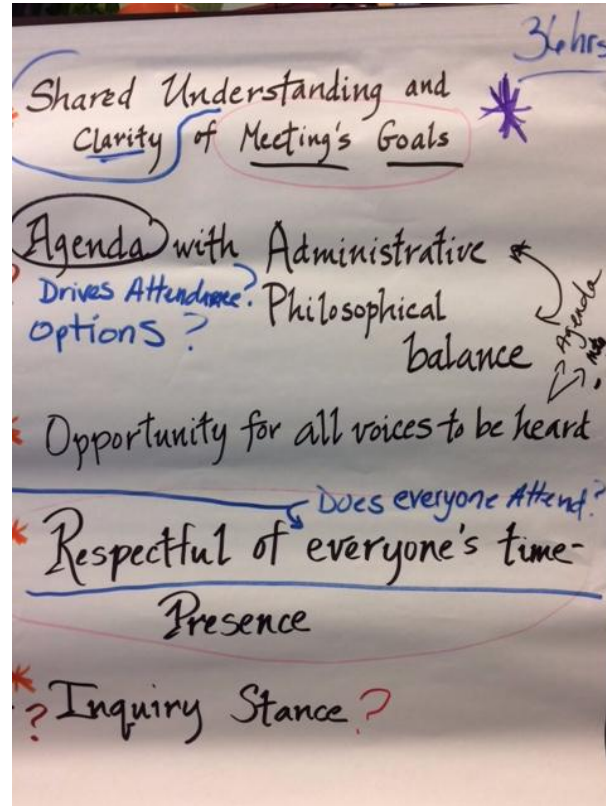 36 hrs
Shared Understanding and
Clarity of Meeting's Goals
Agenda with Administrative
Drives Attendance?
Options?
Philosophical
balance
Agenda
Opportunity for all voices to be heard
Does everyone Attend?
Respectful of everyone's time-
Presence
? Inquiry Stance?